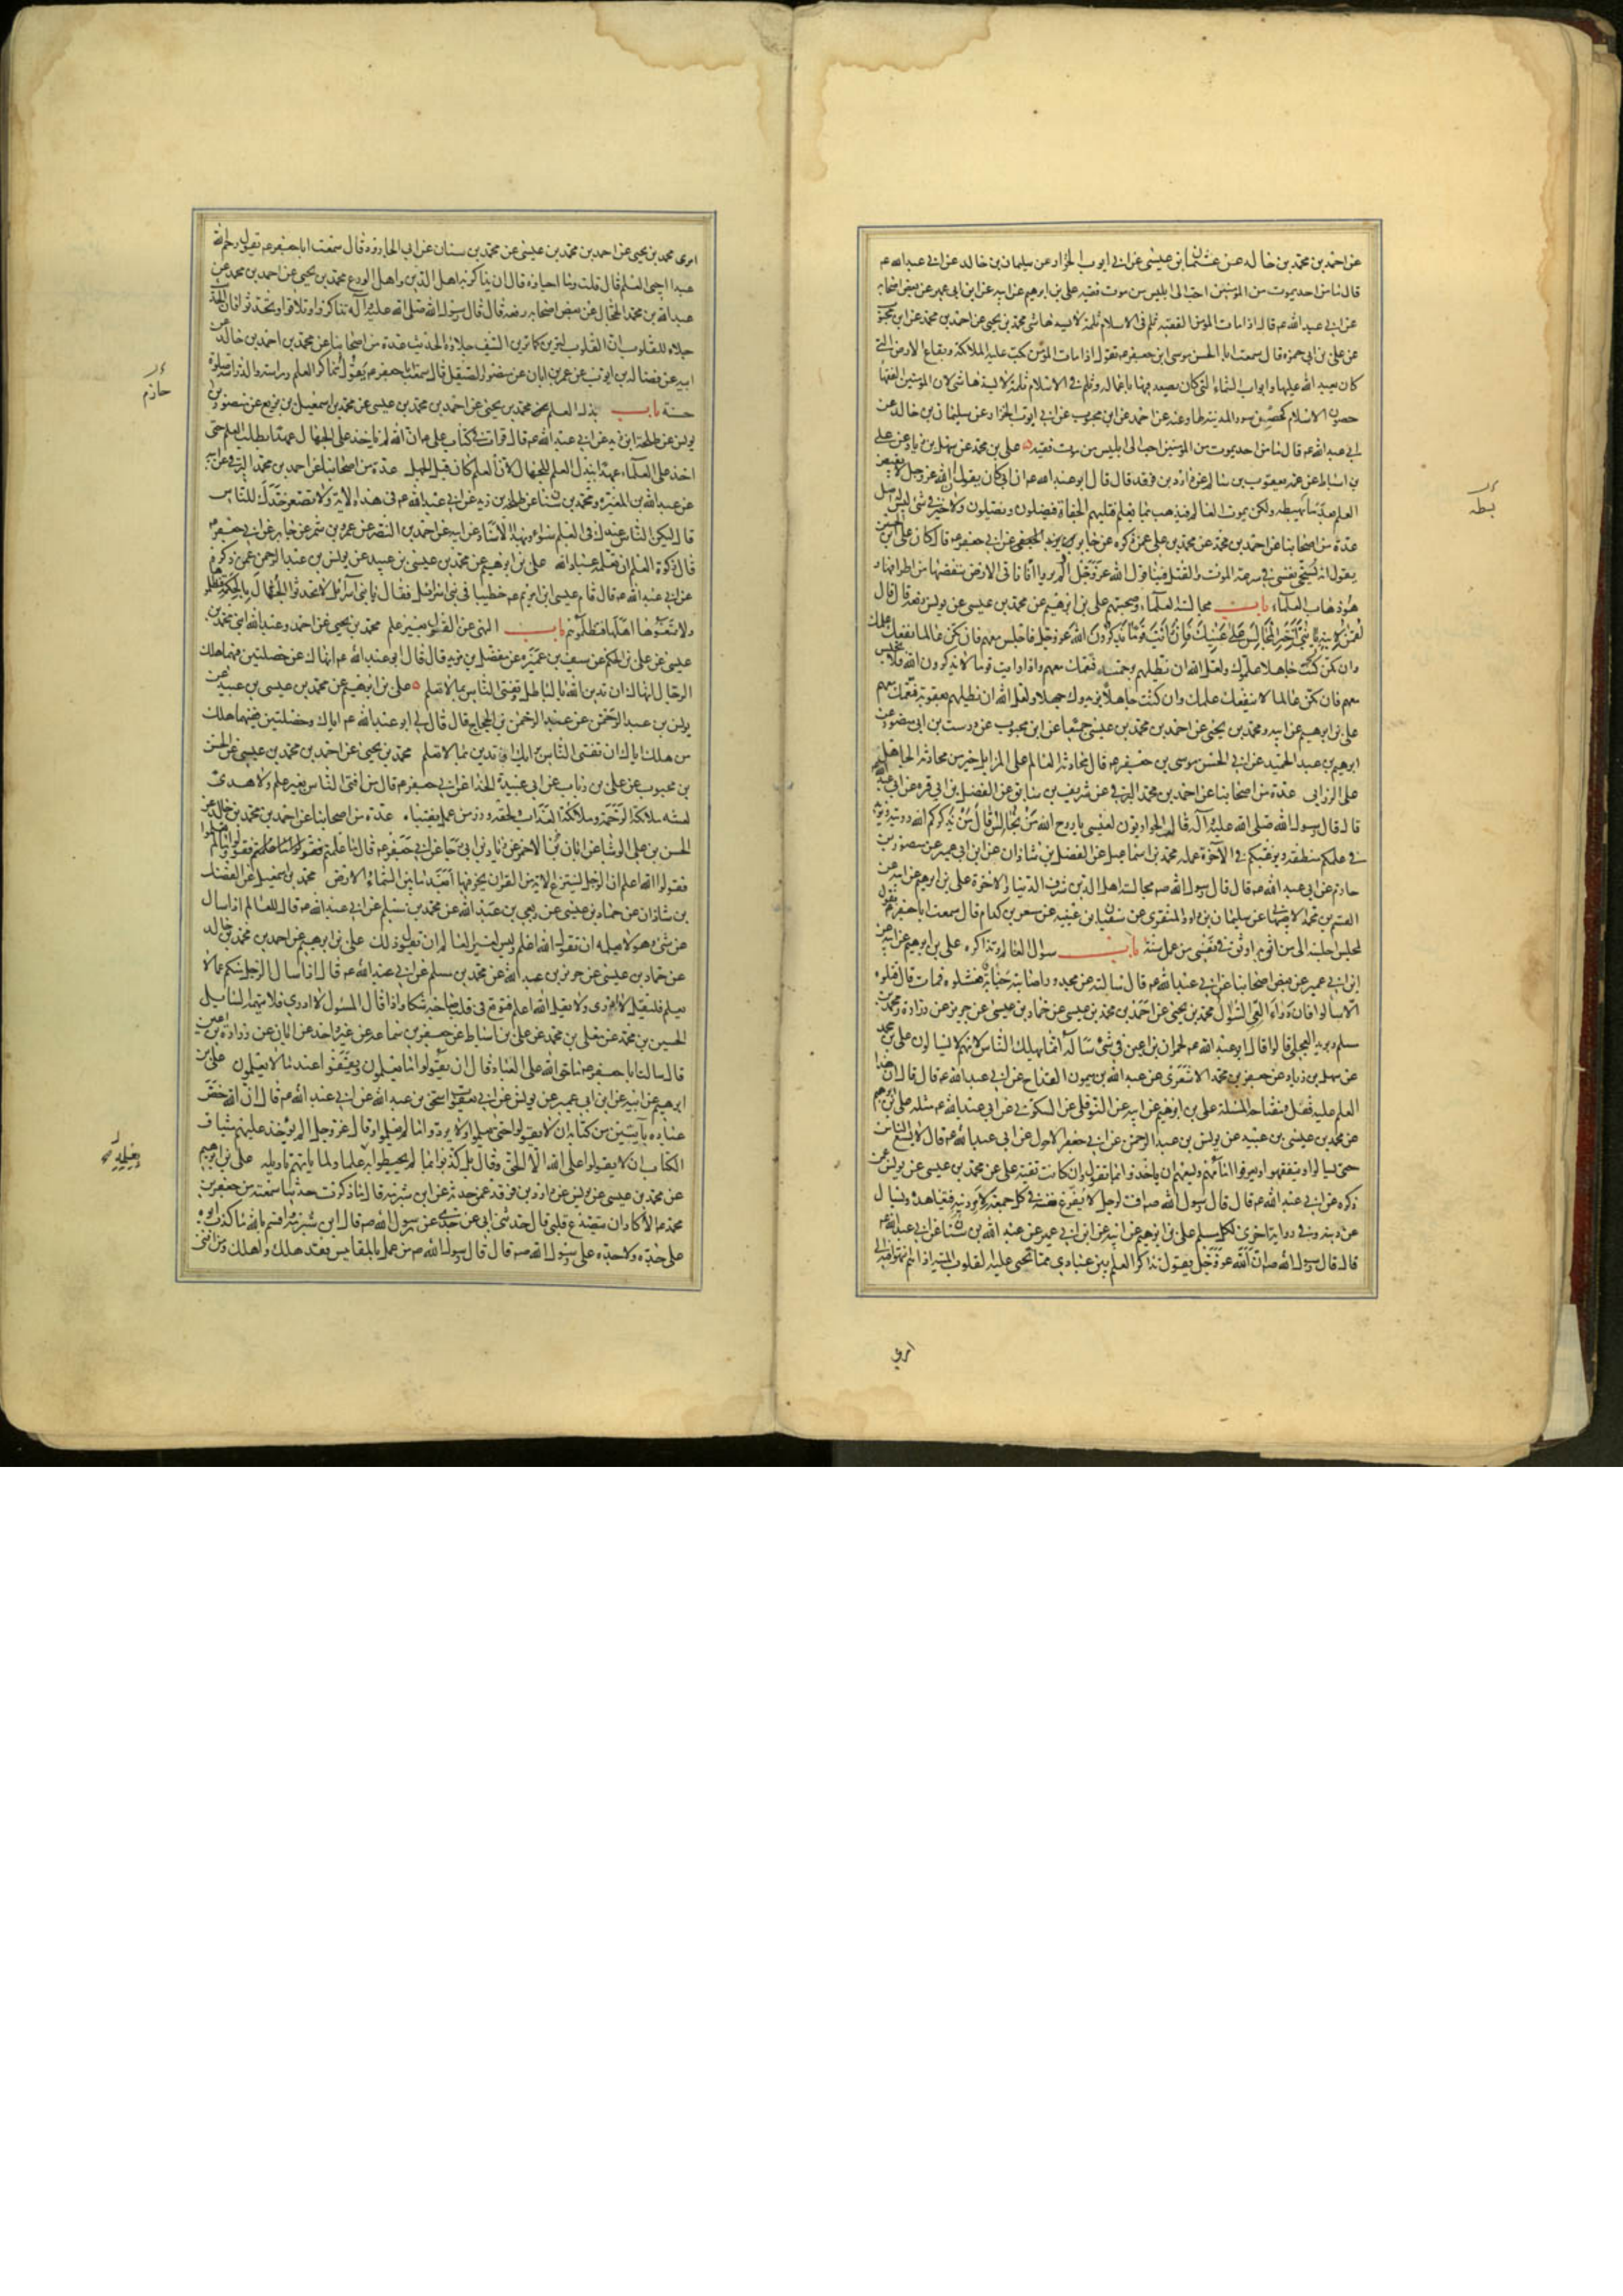 عن احمد بن محمد بن خالد عن عثمان بن عيسى عن ابي ايوب الخزاز عن سليمان بن خالد عن ابي عبد الله ع
قال ما من احد يموت من المؤمنين احب الى ابليس من موت فقيه علي بن ابرهيم عن ابيه عن ابن ابي عمير عن بعض اصحابه
عن ابي عبد الله ع قال اذا مات المؤمن الفقيه ثلم في الاسلام ثلمة لا يسدها شئ محمد بن يحيى عن احمد بن محمد عن ابن محبوب
عن علي بن ابي حمزه قال سمعت ابا الحسن موسى ابن جعفر ع يقول اذا مات المؤمن بكت عليه الملائكة وبقاع الارض التي
كان يعبد الله عليها وابواب السماء التي كان يصعد فيها باعماله وثلم في الاسلام ثلمة لا يسدها شئ لان المؤمنين الفقهاء
حصون الاسلام كحصن سور المدينة لها وعنه عن احمد عن ابن محبوب عن ابي ايوب الخزاز عن سليمان بن خالد عن
ابي عبد الله ع قال ما من احد يموت من المؤمنين احب الى ابليس من موت فقيه علي بن محمد عن سهل بن زياد عن علي
بن اسباط عن عمه يعقوب بن سالم عن داود بن فرقد قال قال ابو عبد الله ع ان ابي كان يقول ان الله عز وجل لا يقبض
العلم بعد ما يهبطه ولكن يموت العالم فيذهب بما يعلم فتليهم الجفاة فيضلون ويضلون ولا خير في شئ ليس له اصل
عدة من اصحابنا عن احمد بن محمد عن محمد بن علي عمن ذكره عن جابر عن ابي جعفر ع قال كان علي بن الحسين
يقول انه يسخي نفسي في سرعة الموت والقتل فينا قول الله عز وجل اولم يروا انا ناتي الارض ننقصها من اطرافها و
هو ذهاب العلماء باب مجالسة العلماء وصحبتهم علي بن ابرهيم عن محمد بن عيسى عن يونس رفعه قال قال
لقمن لابنه يا بني اختر المجالس على عينك فان رايت قوما يذكرون الله عز وجل فاجلس معهم فان تكن عالما نفعك علمك
وان تكن جاهلا علموك ولعل الله ان يظلهم برحمته فتعمك معهم واذا رايت قوما لا يذكرون الله فلا تجلس
معهم فان تكن عالما لا ينفعك علمك وان كنت جاهلا يزيدوك جهلا ولعل الله ان يظلهم بعقوبة فتعمك معهم
علي بن ابرهيم عن ابيه ومحمد بن يحيى عن احمد بن محمد بن عيسى جميعا عن ابن محبوب عن درست بن ابي منصور عن
ابرهيم بن عبد الحميد عن ابي الحسن موسى بن جعفر ع قال محادثة العالم على المزابل خير من محادثة الجاهل
على الزرابي عدة من اصحابنا عن احمد بن محمد البرقي عن شريف بن سابق عن الفضل بن ابي قره عن ابي عبد الله
قال قال رسول الله صلى الله عليه وآله قالت الحواريون لعيسى يا روح الله من نجالس قال من يذكركم الله رؤيته ويزيد
في علمكم منطقه ويرغبكم في الآخرة عمله محمد بن اسماعيل عن الفضل بن شاذان عن ابن ابي عمير عن منصور بن
حازم عن ابي عبد الله ع قال قال رسول الله ص مجالسة اهل الدين شرف الدنيا والاخرة علي بن ابرهيم عن ابيه عن
القسم بن محمد الاصبهاني عن سليمان بن داود المنقري عن سفيان ابن عيينه عن مسعر بن كدام قال سمعت ابا جعفر ع يقول
لمجلس اجلسه الى من اثق به اوثق في نفسي من عمل سنة باب سؤال العالم وتذاكره علي بن ابرهيم عن ابيه عن
ابن ابي عمير عن بعض اصحابنا عن ابي عبد الله ع قال سالته عن مجدور اصابته جنابة فغسلوه فمات قال قتلوه
الا سالوا فان دواء العي السؤال محمد بن يحيى عن احمد بن محمد بن عيسى عن حماد بن عيسى عن حريز عن زرارة ومحمد بن
مسلم وبريد العجلي قالوا قال ابو عبد الله ع لحمران بن اعين في شئ ساله انما يهلك الناس لانهم لا يسالون علي بن محمد
عن سهل بن زياد عن جعفر بن محمد الاشعري عن عبد الله بن ميمون القداح عن ابي عبد الله ع قال قال ان هذا
العلم عليه قفل ومفتاحه المسئلة علي بن ابرهيم عن ابيه عن النوفلي عن السكوني عن ابي عبد الله ع مثله علي بن ابرهيم
عن محمد بن عيسى بن عبيد عن يونس بن عبد الرحمن عن ابي جعفر الاحول عن ابي عبد الله ع قال لا يسع الناس
حتى يسالوا ويتفقهوا ويعرفوا امامهم ويسعهم ان ياخذوا بما يقول وان كانت تقية علي عن محمد بن عيسى عن يونس عن
ذكره عن ابي عبد الله ع قال قال رسول الله ص اف لرجل لا يفرغ نفسه في كل جمعة لامر دينه فيتعاهده ويسال
عن دينه وفي رواية اخرى لكل مسلم علي بن ابرهيم عن ابيه عن ابن ابي عمير عن عبد الله بن سنان عن ابي عبد الله ع
قال قال رسول الله ص ان الله عز وجل يقول تذاكر العلم بين عبادي مما تحيى عليه القلوب الميتة اذا هم انتهوا فيه الى
امري
امري محمد بن يحيى عن احمد بن محمد بن عيسى عن محمد بن سنان عن ابي الجارود قال سمعت ابا جعفر ع يقول رحم الله
عبدا احيى العلم قال قلت وما احياؤه قال ان يذاكر به اهل الدين واهل الورع محمد بن يحيى عن احمد بن محمد عن
عبد الله بن محمد الحجال عن بعض اصحابه رفعه قال قال رسول الله صلى الله عليه وآله تذاكروا وتلاقوا وتحدثوا فان الحديث
جلاء للقلوب ان القلوب لترين كما يرين السيف جلاؤه الحديث عدة من اصحابنا عن احمد بن محمد بن خالد عن
ابيه عن فضالة بن ايوب عن عمر بن ابان عن منصور الصيقل قال سمعت ابا جعفر ع يقول تذاكر العلم دراسة والدراسة صلوة
حسنة باب بذل العلم محمد بن يحيى عن احمد بن محمد بن عيسى عن محمد بن اسمعيل بن بزيع عن منصور بن
حازم
يونس عن طلحة ابن زيد عن ابي عبد الله ع قال قرات في كتاب علي ع ان الله لم ياخذ على الجهال عهدا بطلب العلم حتى
اخذ على العلماء عهدا ببذل العلم للجهال لان العلم كان قبل الجهل عدة من اصحابنا عن احمد بن محمد البرقي عن ابيه
عن عبد الله بن المغيرة ومحمد بن سنان عن طلحة بن زيد عن ابي عبد الله ع في هذه الاية ولا تصعر خدك للناس
قال ليكن الناس عندك في العلم سواء وبهذا الاسناد عن ابيه عن احمد بن النضر عن عمرو بن شمر عن جابر عن ابي جعفر ع
قال زكوة العلم ان تعلمه عباد الله علي بن ابرهيم عن محمد بن عيسى بن عبيد عن يونس بن عبد الرحمن عمن ذكره
عن ابي عبد الله ع قال قام عيسى ابن مريم ع خطيبا في بني اسرائيل فقال يا بني اسرائيل لا تحدثوا الجهال بالحكمة فتظلموها
ولا تمنعوها اهلها فتظلموهم باب النهي عن القول بغير علم محمد بن يحيى عن احمد وعبد الله ابني محمد بن
عيسى عن علي بن الحكم عن سيف بن عميرة عن مفضل بن مزيد قال قال ابو عبد الله ع انهاك عن خصلتين فيهما هلك
الرجال انهاك ان تدين الله بالباطل وتفتي الناس بما لا تعلم علي بن ابرهيم عن محمد بن عيسى بن عبيد عن
يونس بن عبد الرحمن عن عبد الرحمن بن الحجاج قال قال لي ابو عبد الله ع اياك وخصلتين ففيهما هلك
من هلك اياك ان تفتي الناس برايك او تدين بما لا تعلم محمد بن يحيى عن احمد بن محمد بن عيسى عن الحسن
بن محبوب عن علي بن رئاب عن ابي عبيدة الحذاء عن ابي جعفر ع قال من افتى الناس بغير علم ولا هدى
لعنته ملائكة الرحمة وملائكة العذاب ولحقه وزر من عمل بفتياه عدة من اصحابنا عن احمد بن محمد بن خالد عن
الحسن بن علي الوشا عن ابان الاحمر عن زياد بن ابي رجا عن ابي جعفر ع قال ما علمتم فقولوا وما لم تعلموا
فقولوا الله اعلم ان الرجل لينتزع الاية من القرآن يخر فيها ابعد ما بين السماء والارض محمد بن اسمعيل عن الفضل
بن شاذان عن حماد بن عيسى عن ربعي بن عبد الله عن محمد بن مسلم عن ابي عبد الله ع قال للعالم اذا سال
عن شئ وهو لا يعلمه ان يقول الله اعلم وليس لغير العالم ان يقول ذلك علي بن ابرهيم عن احمد بن محمد بن خالد
عن حماد بن عيسى عن حريز بن عبد الله عن محمد بن مسلم عن ابي عبد الله ع قال اذا سال الرجل منكم عما لا
يعلم فليقل لا ادري ولا يقل الله اعلم فيوقع في قلب صاحبه شكا واذا قال المسئول لا ادري فلا يتهمه السايل
الحسين بن محمد عن معلى بن محمد عن علي بن اسباط عن جعفر بن سماعه عن غير واحد عن ابان عن زرارة بن اعين
قال سالت ابا جعفر ع ما حق الله على العباد قال ان يقولوا ما يعلمون ويقفوا عند ما لا يعلمون علي بن
ابرهيم عن ابيه عن ابن ابي عمير عن يونس عن ابي يعقوب اسحق بن عبد الله عن ابي عبد الله ع قال ان الله خص
عباده بآيتين من كتابه ان لا يقولوا حتى يعلموا ولا يردوا ما لم يعلموا وقال عز وجل الم يؤخذ عليهم ميثاق
الكتاب ان لا يقولوا على الله الا الحق وقال بل كذبوا بما لم يحيطوا بعلمه ولما ياتهم تاويله علي بن ابرهيم
عن محمد بن عيسى عن يونس عن داود بن فرقد عمن حدثه عن ابن شبرمه قال ما ذكرت حديثا سمعته من جعفر بن
محمد ع الا كاد ان يتصدع قلبي قال حدثني ابي عن جدي عن رسول الله ص قال ابن شبرمة واقسم بالله ما كذب ابوه
على جده ولا جده على رسول الله ص قال قال رسول الله ص من عمل بالمقاييس فقد هلك واهلك ومن افتى